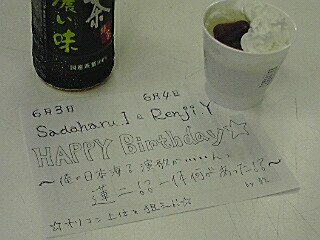 茶
濃い味
国産茶葉100%
6月3日 6月4日
Sadaharu.I & Renji.Y
HAPPY Birthday☆
～俺の日本海る演歌が……んと
蓮二 一体何があった
☆オリコン上位を狙え☆